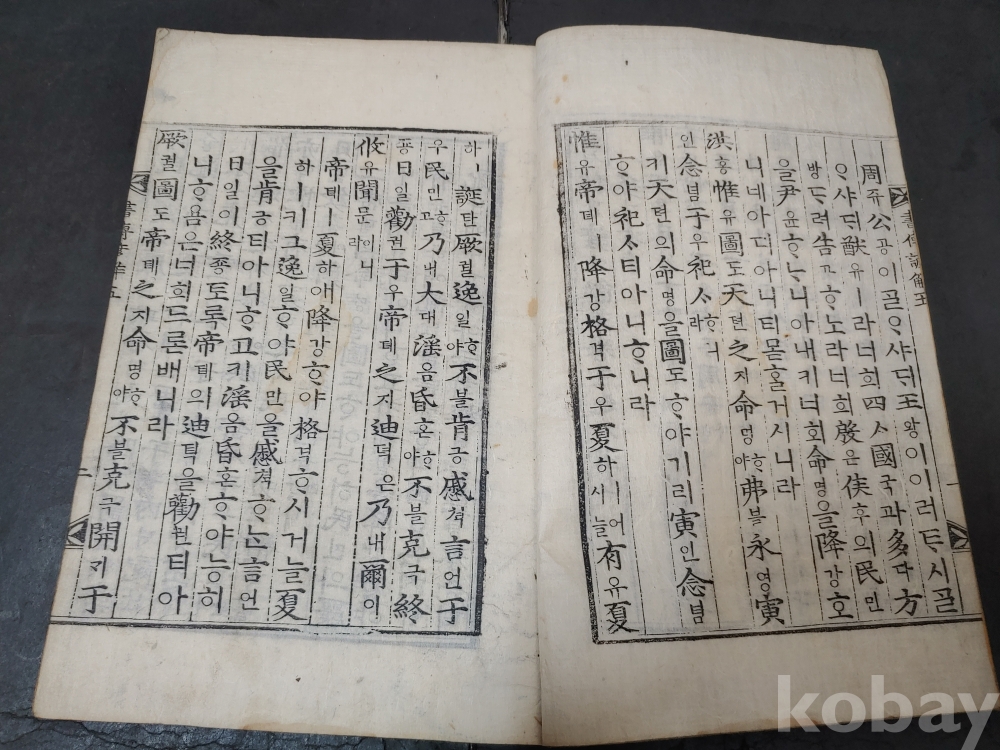 書傳諺解五
一
周쥬公공이ᄀᆞᆯᄋᆞ샤ᄃᆡ王왕이이러ᄐᆞ시ᄀᆞᆯ
ᄋᆞ샤ᄃᆡ猷유ㅣ라너희四ᄉᆞ國국과多다方
방ᄃᆞ려告고ᄒᆞ노라너희殷은侯후의民민
을尹윤ᄒᆞᄂᆞ니아내키너희命명을降강호
니네아디아니티몯ᄒᆞᆯ거시니라
洪홍惟유圖도天텬之지命명ᄒᆞ야弗블永영寅
인念념于우祀ᄉᆞᄒᆞ니라
키天텬의命명을圖도ᄒᆞ야기리寅인念념
ᄒᆞ야祀ᄉᆞ티아니ᄒᆞ니라
惟유帝뎨ㅣ降강格격于우夏하ㅣ어시늘有유夏
하ㅣ誕탄厥궐逸일ᄒᆞ야不블肯긍慼쳑言언于
우民민ᄒᆞ고乃내大대淫음昏혼ᄒᆞ야不블克극終
죵日일勸권于우帝뎨之지迪뎍은乃내爾이
攸유聞문이니라
帝뎨ㅣ夏하애降강ᄒᆞ야格격ᄒᆞ시거늘夏
하ㅣ키그逸일ᄒᆞ야民민을慼쳑ᄒᆞᄂᆞᆫ言언
을肯긍티아니ᄒᆞ고키淫음昏혼ᄒᆞ야능히
日일이終죵토록帝뎨의迪뎍을勸권티아
니ᄒᆞ욤은너희드론배니라
厥궐圖도帝뎨之지命명ᄒᆞ야不블克극開ᄀᆡ于
kobay